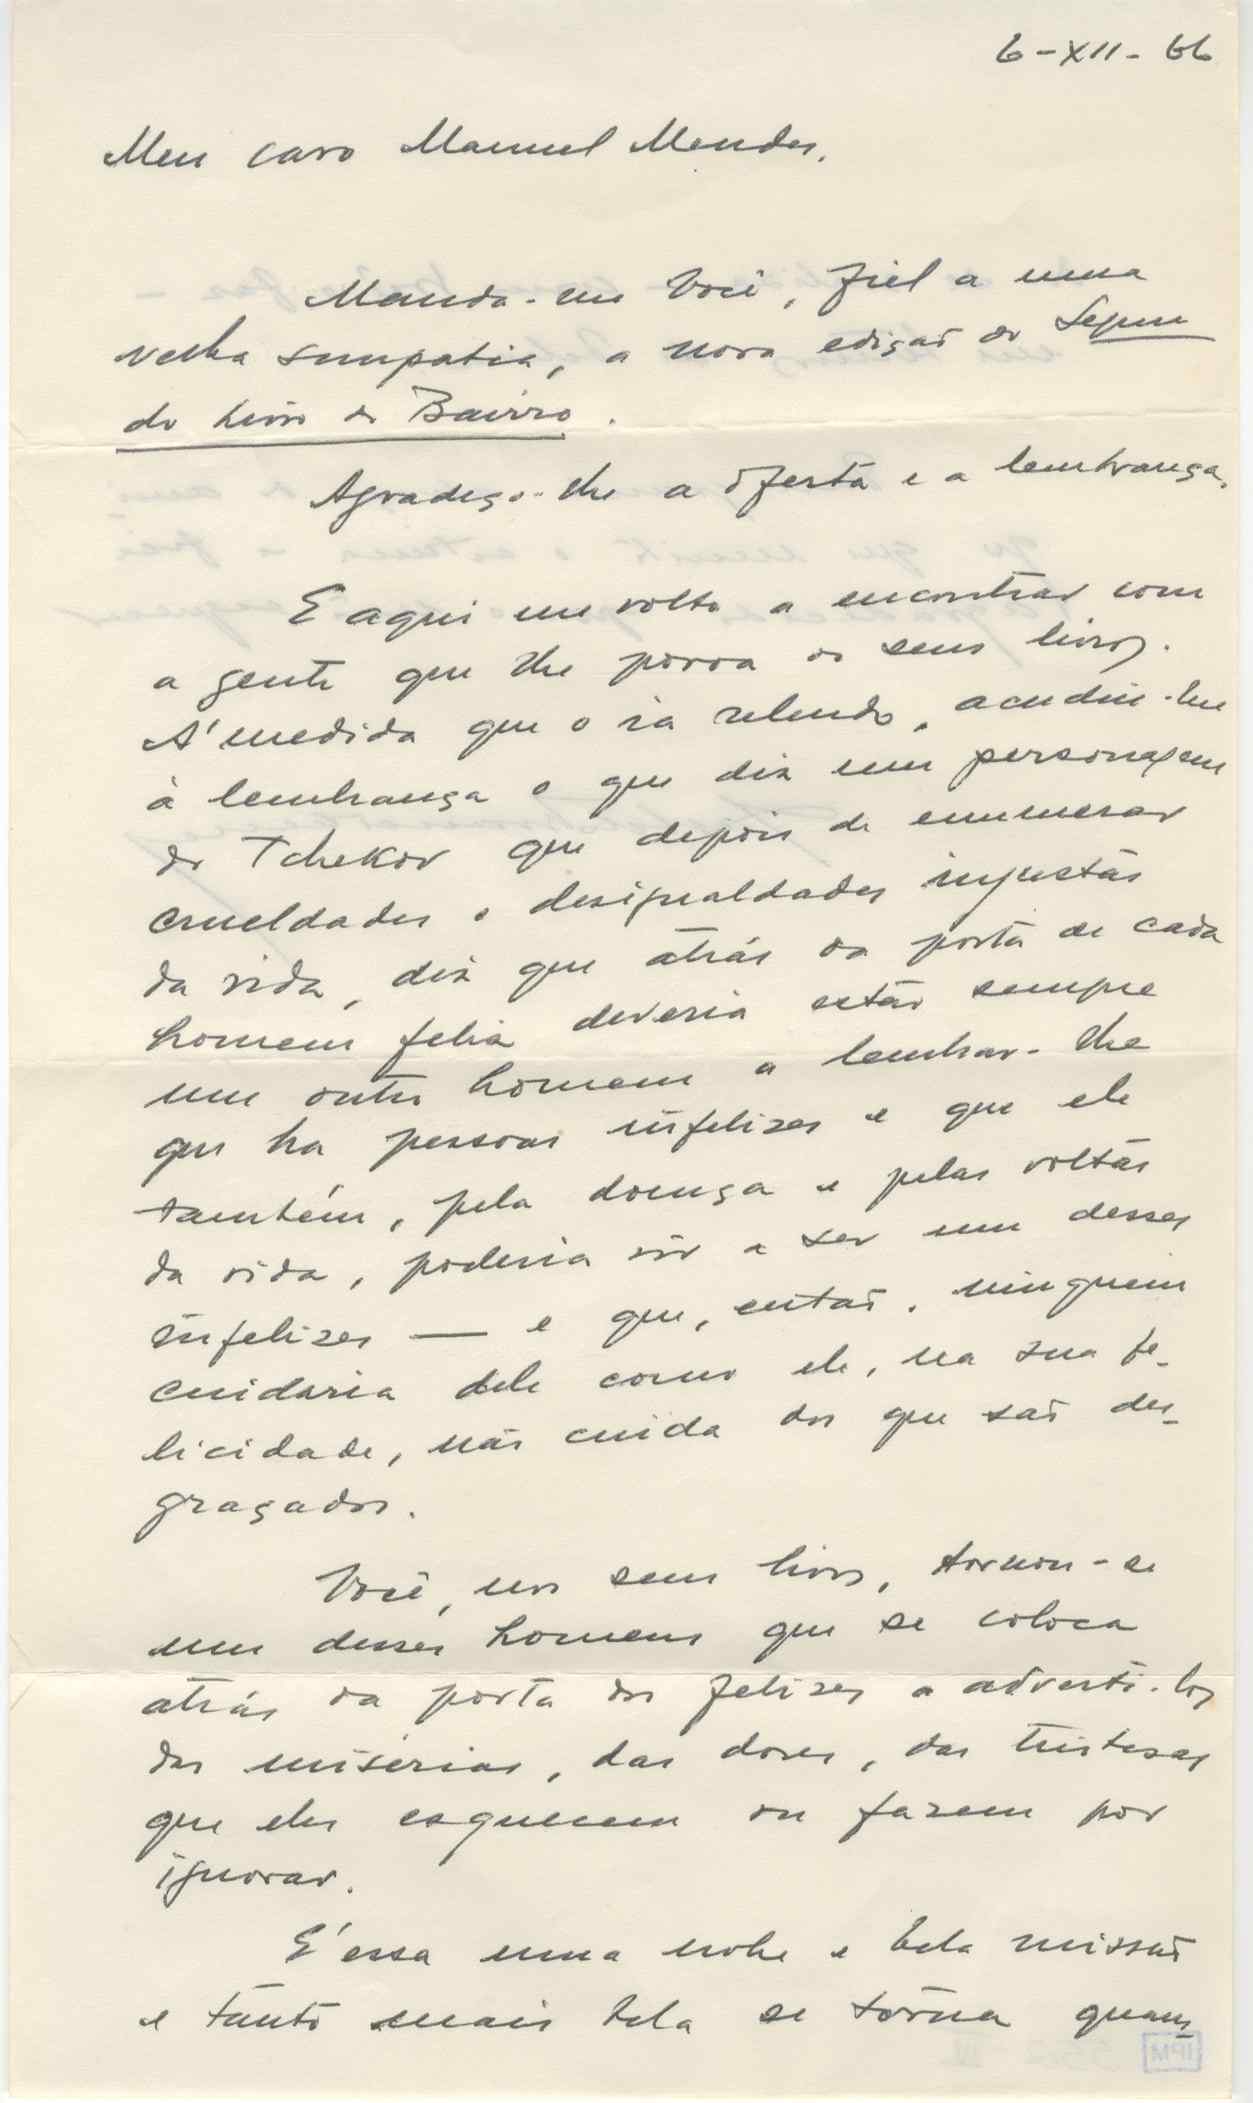 6-XII-66
Meu caro Manuel Mendes,
Manda-me Você, fiel a uma
velha simpatia, a nova edição do Segun
do Livro do Bairro.
Agradeço-lhe a oferta e a lembrança.
E aqui me volto a encontrar com
a gente que lhe povoa os seus livros.
A' medida que o ia relendo, acudiu-me
à lembrança o que diz um personagem
de Tchekov que depois de enumerar
crueldades e desigualdades injustas
da vida, diz que atrás da porta de cada
homem feliz deveria estar sempre
um outro homem a lembrar-lhe
que ha pessoas infelizes e que ele
também, pela doença e pelas voltas
da vida, poderia vir a ser um desses
infelizes — e que, então, ninguem
cuidaria dele como ele, na sua fe-
licidade, não cuida dos que são des-
graçados.
Você, nos seus livros, tornou-se
um desses homens que se coloca
atrás da porta dos felizes a adverti-los
das misérias, das dores, das tristezas
que eles esquecem ou fazem por
ignorar.
E' essa uma nobre e bela missão
e tanto mais bela se torna quan-
IPM